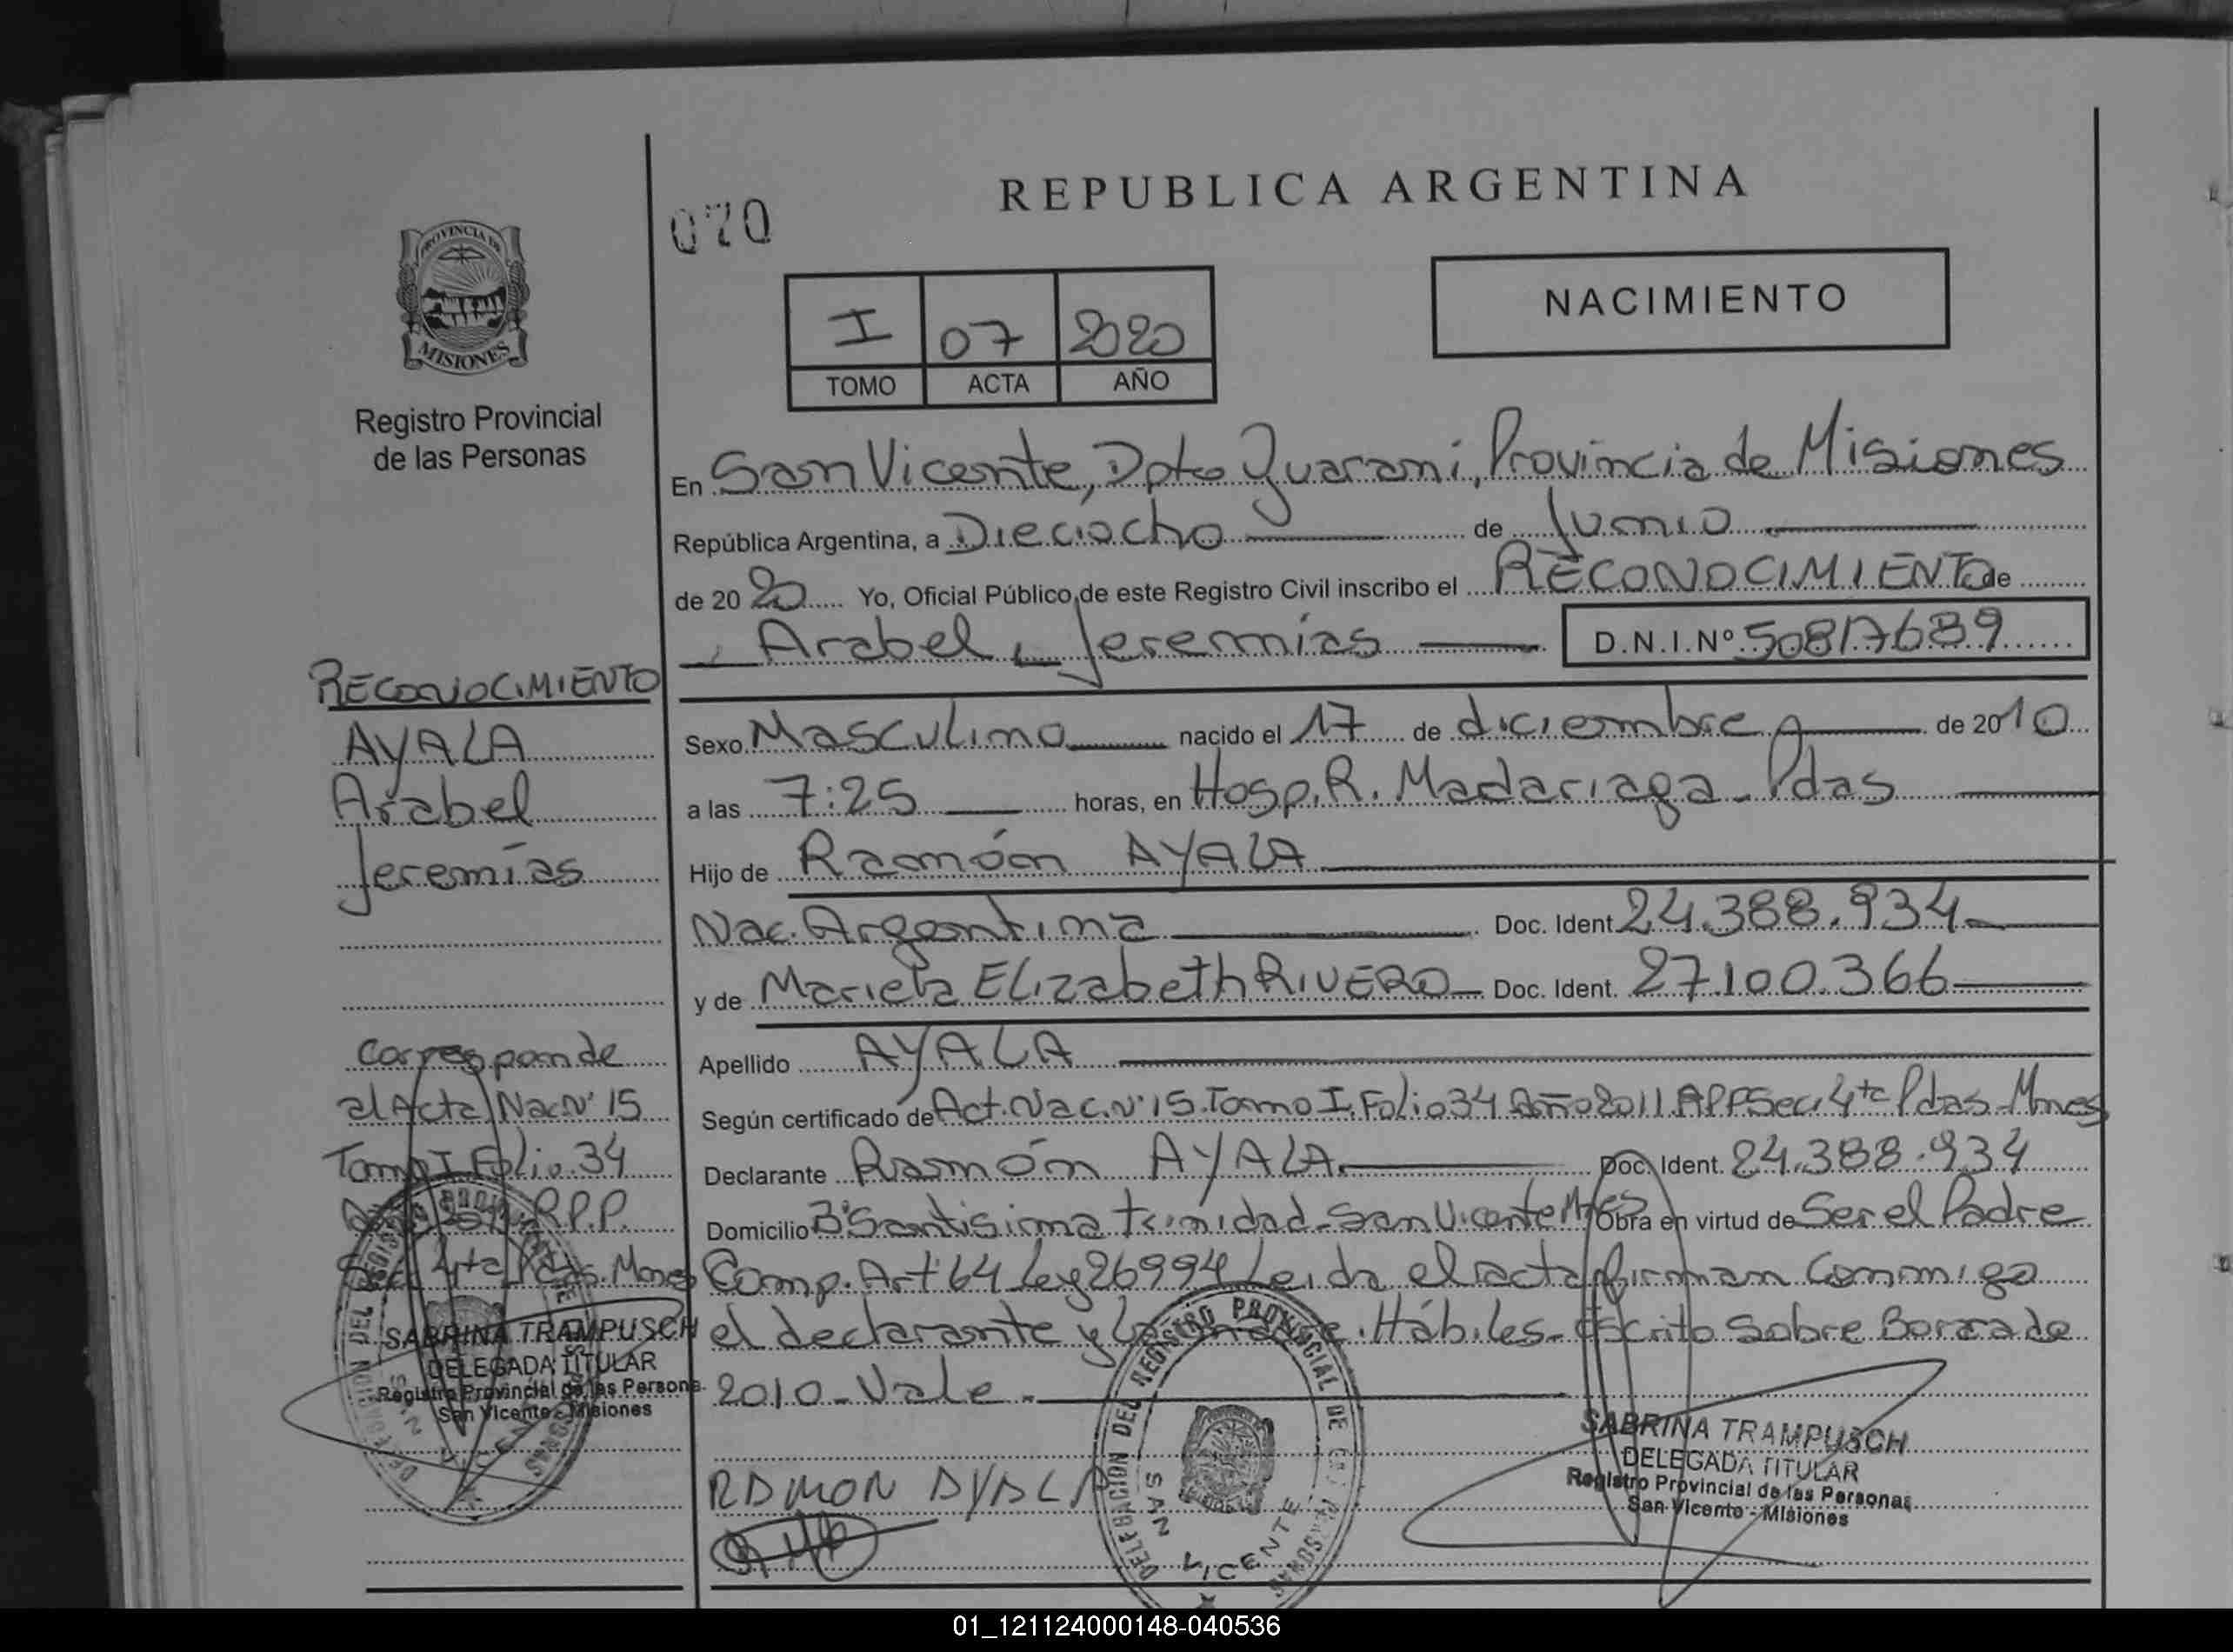 REPUBLICA ARGENTINA
070
NACIMIENTO
I 07 2020
TOMO ACTA AÑO
PROVINCIA DE
MISIONES
Registro Provincial
de las Personas
En San Vicente, Dpto Guaraní, Provincia de Misiones
República Argentina, a Dieciocho de Junio
de 2020 Yo, Oficial Público de este Registro Civil inscribo el RECONOCIMIENTO de
Arabel Jeremías D.N.I.Nº 50817689
RECONOCIMIENTO
AYALA
Arabel
Jeremías
Sexo Masculino nacido el 17 de diciembre de 2010
a las 7:25 horas, en Hosp. R. Madariaga - Pdas
Hijo de Ramón AYALA
Nac. Argentina Doc. Ident. 24.388.934
y de Mariela Elizabeth RIVERO Doc. Ident. 27.100.366
Apellido AYALA
Según certificado de Act. Nac. Nº 15 Tomo I, Folio 34 Año 2011 RPP Sec. 4ta Pdas - Mnes
Declarante Ramón AYALA Doc. Ident. 24.388.934
Domicilio Bº Santisima trinidad - San Vicente Mnes Obra en virtud de Ser el Padre
Comp. Art 64 Ley 26994 Leida el acta firman Conmigo
el declarante y la Hábiles - Escrito Sobre Borrado
2010 - Vale -
Corresponde
al Acta Nac. Nº 15
Tomo I Folio 34
R.P.P.
Sec 4ta Pdas. Mnes
SABRINA TRAMPUSCH
DELEGADA TITULAR
Registro Provincial de las Persona
San Vicente - Misiones
RAMON AYALA
DELEGACION DEL REGISTRO PROVINCIAL DE LAS PERSONAS
SAN VICENTE
SABRINA TRAMPUSCH
DELEGADA TITULAR
Registro Provincial de las Personas
San Vicente - Misiones
01_121124000148-040536